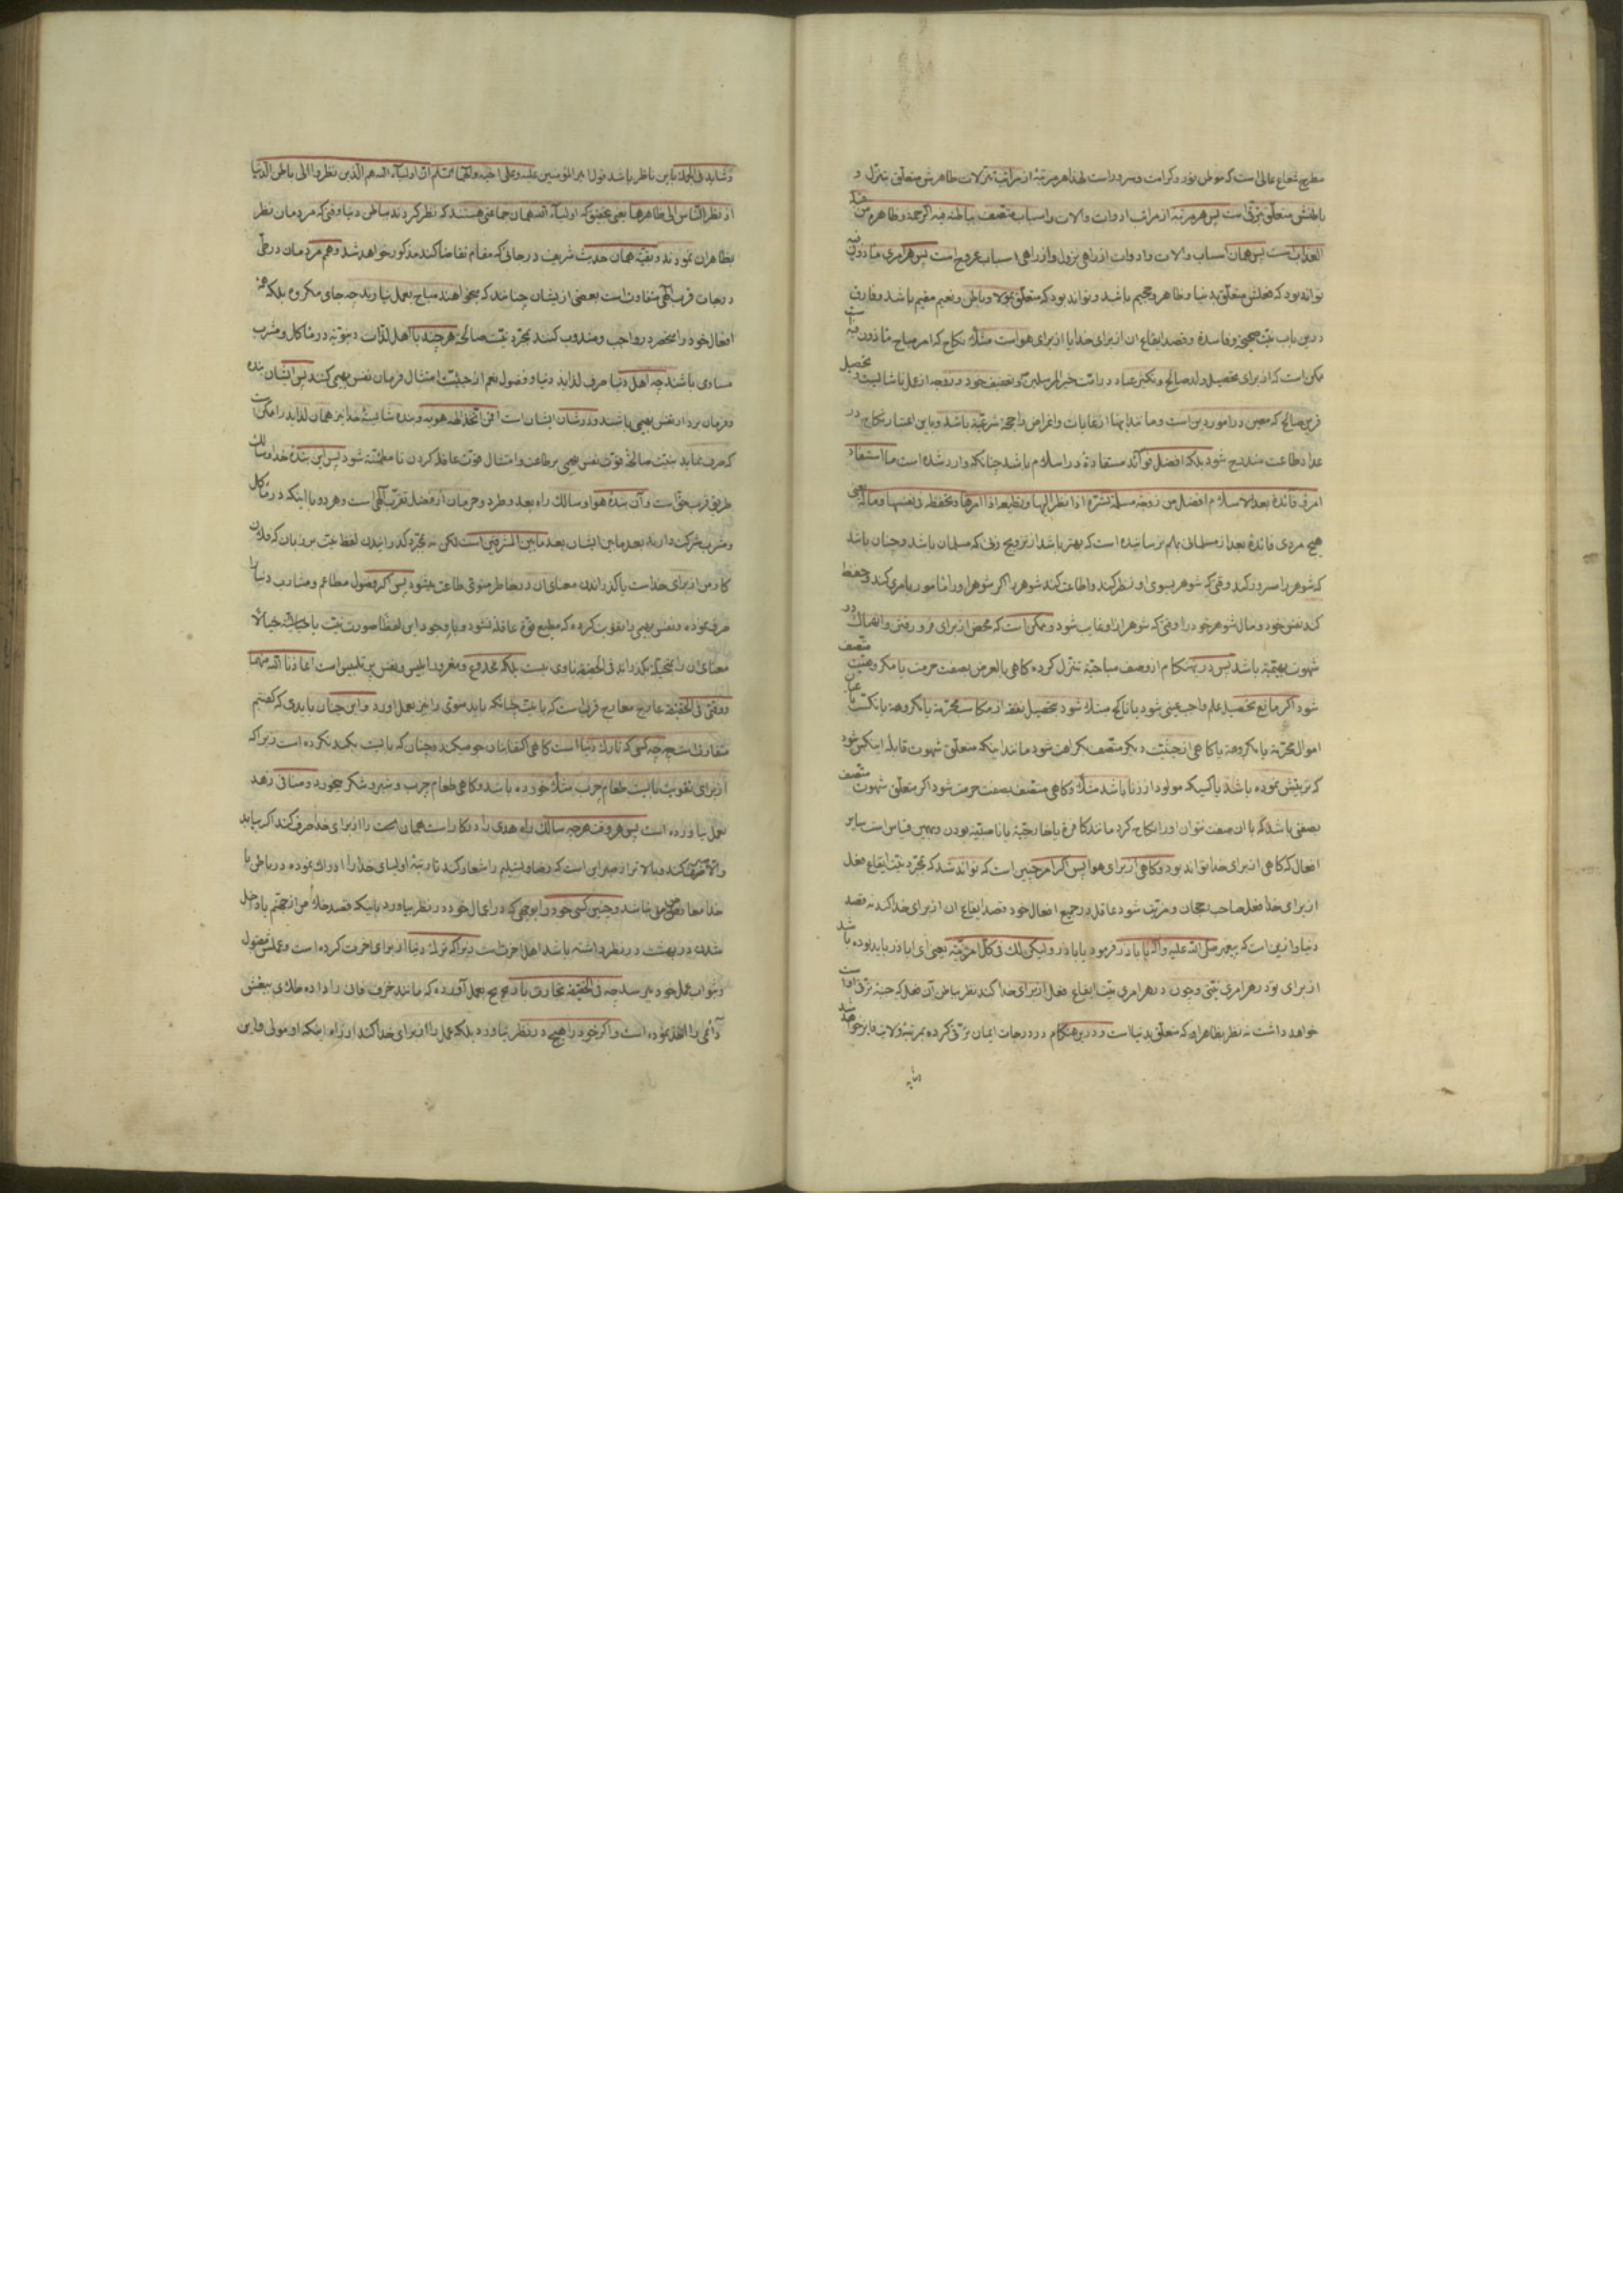 مطرح شعاع عالی است که موطن نور و کرامت و سرور است لهذا هر مرتبهٔ از مراتب تنزلات ظاهرش متعلّق بتنزل و
باطنش متعلّق بترقّی است پس هر مرتبه از مراتب ادوات و الات و اسباب متّصف بباطنه فیه الرحمة و ظاهره من قبله
العذابست پس همان اسباب و الات و ادوات از راهی نزول و از راهی اسباب عروج است پس هر امری مأذون فیه
تواند بود که فعلش متعلّق بدنیا و ظاهر و جحیم باشد و تواند بود که متعلّق بمولا و باطن و نعیم مقیم باشد و فارق
درین باب نیّت صحیحه و فاسده و قصد ایقاع ان از برای خدا یا از برای هواست مثلاً نکاح که امر مباح مأذون فیه است
ممکن است که از برای تحصیل ولد صالح و تکثیر عباد در امّت خیر المرسلین و تعفیف خود و زوجه از عمل ناشایست و تحصیل
قرین صالح که معین در امور دین است و مانند اینها از غایات و اغراض راجحهٔ شرعیّه باشد و باین اعتبار نکاح در
عداد طاعت مندرج شود بلکه افضل فوائد مستفادهٔ در اسلام باشد چنانکه وارد شده است ما استفاد
امرؤ فائدة بعد الاسلام افضل من زوجة مسلمة تسرّه اذا نظر الیها و تطیعه اذا امرها و تحفظه فی نفسها و ماله یعنی
هیچ مردی فائدهٔ بعد از مسلمانی بهم نرسانیده است که بهتر باشد از تزویج زنی که مسلمان باشد و چنان باشد
که شوهر را مسرور کند وقتی که شوهر بسوی او نظر کند و اطاعت کند شوهر را اگر شوهر او را مأمور بامری کند و حفظ
کند نفس خود و مال شوهر خود را وقتی که شوهر از او غایب شود و ممکن است که محض از برای فرو رفتن و انهماک در
شهوت بهیمیّه باشد پس درین هنگام از وصف مباحیّة تنزل کرده گاهی بالعرض بصفت حرمت یا مکروهیّت متّصف
شود اگر مانع تحصیل علم واجب عینی شود یا ناکح مثلاً شود تحصیل نفقه از مکاسب محرّمة یا مکروهة یا
اموال محرّمة یا مکروهة یا گاهی از حیثیّت دیگر متّصف بکراهت شود مانند اینکه متعلّق شهوت قابلهٔ اینکس شود
که تربیتش نموده باشد یا کسیکه مولود از زنا باشد مثلاً و گاهی متّصف بصفت حرمت شود اگر متعلّق شهوت متّصف
بصفتی باشد که با ان صفت نتوان او را نکاح کرد مانند کافرهٔ یا خارجیّهٔ یا ناصبیّه بودن و بهمین قیاس است سایر
افعال که گاهی از برای خدا تواند بود و گاهی از برای هوا پس اگر امر چنین است که تواند شد که بمجرّد نیّت ایقاع فعل
از برای خدا فعل صاحب رجحان و مزیّت شود عاقل در جمیع افعال خود قصد ایقاع ان از برای خدا کند نه قصد
دنیا و ازین است که پیغمبر صلّی الله علیه و آله بابا ذر فرمود یا ابا ذر و لیکن لک فی کلّ امر نیّة یعنی ای ابا ذر باید بوده باشد
از برای تو در هر امری نیّتی و چون در هر امری نیّت ایقاع فعل از برای خدا کند نظر بباطن آن فعل که جنبهٔ ترقّی است
خواهد داشت نه نظر بظاهر او که متعلّق بدنیا است و درین هنگام در درجات ایمان ترقّی کرده بمرتبهٔ ولایت فایز خواهد شد
و شاید فی الجمله باین ناظر باشد قول امیر المؤمنین علیه و علی اخیه و الهما السّلم انّ اولیاء الله هم الّذین نظروا الی باطن الدّنیا
اذ نظر النّاس الی ظاهرها یعنی بتحقیق که اولیاء الله همان جماعتی هستند که نظر کردند بباطن دنیا وقتی که مردمان نظر
بظاهر ان نمودند و بقیّه همان حدیث شریف در جائی که مقام تقاضا کند مذکور خواهد شد و هم مردمان در طیّ
درجات قرب الهی متفاوت است بعضی از ایشان چنانند که نمیخواهند مباح بعمل بیاورند چه جای مکروه بلکه همهٔ
افعال خود را منحصر در واجب و مندوب کنند بمجرّد نیّت صالحه هر چند با اهل لذّات دنیویّه در مأکل و مشرب
مساوی باشند چه اهل دنیا صرف لذایذ دنیا و فضول نعم از حیثیّت امتثال فرمان نفس بهیمی کنند پس ایشان بنده
و فرمان بردار نفس بهیمی باشند و در شان ایشان است افمن اتّخذ الهه هویه و بنده شایستهٔ خدا نیز همان لذاید را ممکن است
که صرف نماید بنیّت صالحهٔ قوّت نفس بهیمی بر طاعت و امتثال قوّت عاقله کردن تا مطمئنّه شود پس این بندهٔ خدا و سالک
طریق قرب حقّ است و آن بندهٔ هوا و سالک راه بعد و طرد و حرمان از فضل تقرّب الهی است و هر دو با اینکه در مأکل
و مشرب شرکت دارند بعد مابین ایشان بعد مابین المشرقین است لکن نه بمجرّد گذرانیدن لفظ نیّت بر زبان که فلان
کار من از برای خداست یا گذراندن معنای ان در خاطر منوی طاعت میشود پس اگر فضول مطاعم و مشارب دنیا را
صرف نموده و نفس بهیمی را تقویت کرده که مطیع قوّهٔ عاقله نشود و با وجود این لفظا صورت نیّت یا خیالا
معنای ان را بمخیّله بگذراند فی الحقیقه ناوی نیست بلکه مخدوع و مغرور ابلیس و نفس پر تلبیس است اعاذنا الله منهما
و وقتی فی الحقیقه عارج معارج قربست که با نیّت چنانکه باید منوی را نیز بعمل اورد و این چنان باید که گفتیم
متفاوت است چه کسی که تارک دنیا است گاهی اکتفا بنان جو میکند و چنان که بایست بکند نکرده است زیرا که
از برای تقویت بایست طعام چرب مثلاً خورده باشد و گاهی طعام چرب و شیر و شکر میخورد و منافی زهد
بعمل نیاورده است پس هر وقت هر چه سالک راه هدی را در کار است همان است را از برای خدا صرف کند اگر بیابد
و الا صبر کند و بالاتر از صبر این است که رضا و تسلیم را شعار کند تا رتبهٔ اولیای خدا را ادراک نموده در باطن با
خدا معارض نباشد و چنین کسی خود را بوجهی که در اعمال خود در نظر بیاورد باینکه قصد خلاصی از جهنّم یا داخل
شدن در بهشت در نظر داشته باشد اهل اخرتست زیرا که ترک دنیا از برای اخرت کرده است و عملش مقبول
و بثواب عمل خود میرسد چه فی الحقیقه تجارتی با ترجیح بعمل آورده که مانند خزف فانی را داده طلای بیغش
دائمی را اخذ نموده است و اگر خود را هیچ در نظر نیاورد بلکه عمل را از برای خدا کند از راه اینکه او مولی و این